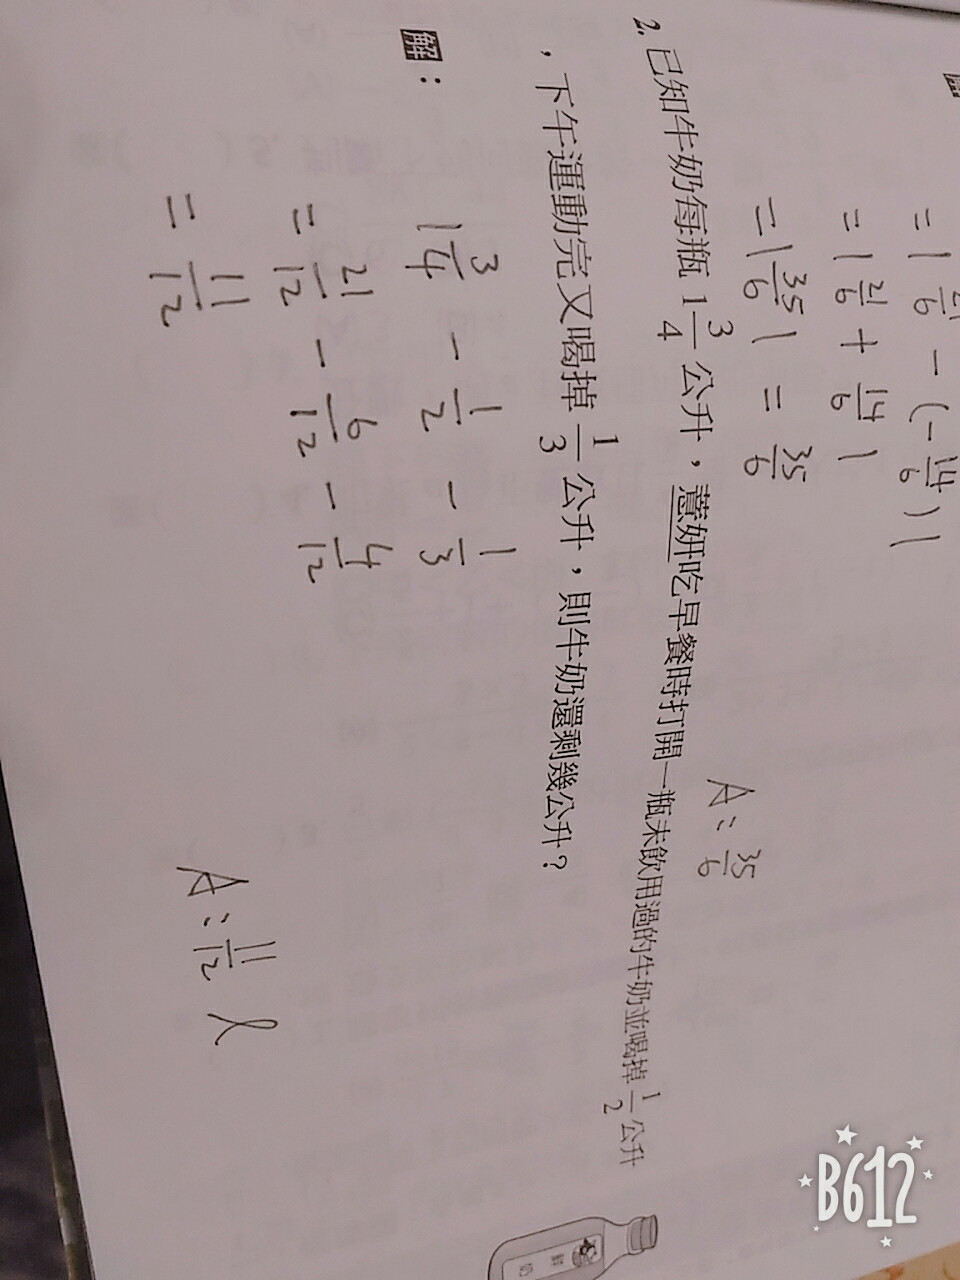 = | 21/6 - (- 14/6) |
= | 21/6 + 14/6 |
= | 35/6 | = 35/6
A: 35/6
2. 已知牛奶每瓶 1 3/4 公升，薏妍吃早餐時打開一瓶未飲用過的牛奶並喝掉 1/2 公升
，下午運動完又喝掉 1/3 公升，則牛奶還剩幾公升？
解：
1 3/4 - 1/2 - 1/3
= 21/12 - 6/12 - 4/12
= 11/12
A: 11/12 l
B612